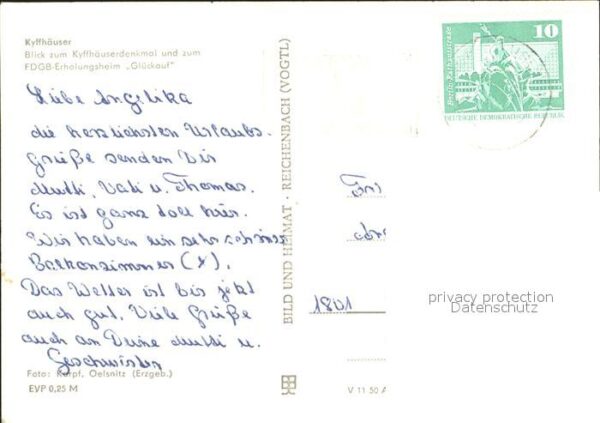 Kyffhäuser
Blick zum Kyffhäuserdenkmal und zum
FDGB-Erholungsheim „Glückauf"
Liebe Angelika
die herzlichsten Urlaubs-
grüße senden Dir
Mutti, Vati u. Thomas.
Es ist ganz toll hier.
Wir haben ein sehr schönes
Balkonzimmer (X).
Das Wetter ist bis jetzt
auch gut. Viele Grüße
auch an Deine Mutti u.
Geschwister
Foto: Karpf, Oelsnitz (Erzgeb.)
EVP 0,25 M
BILD UND HEIMAT · REICHENBACH (VOGTL)
V 11 50 A
10
Berlin, Rathausstraße
DEUTSCHE DEMOKRATISCHE REPUBLIK
1801
privacy protection
Datenschutz